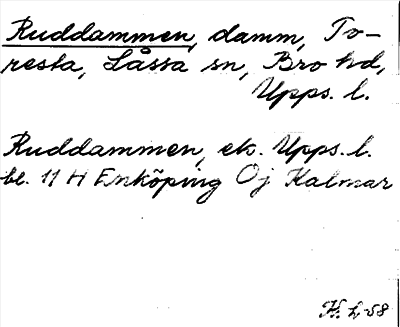 Ruddammen, damm, To-
resta, Låssa sn, Bro hd,
Upps. l.
Ruddammen, ek. Upps. l.
bl. 11 H Enköping Öj Kalmar